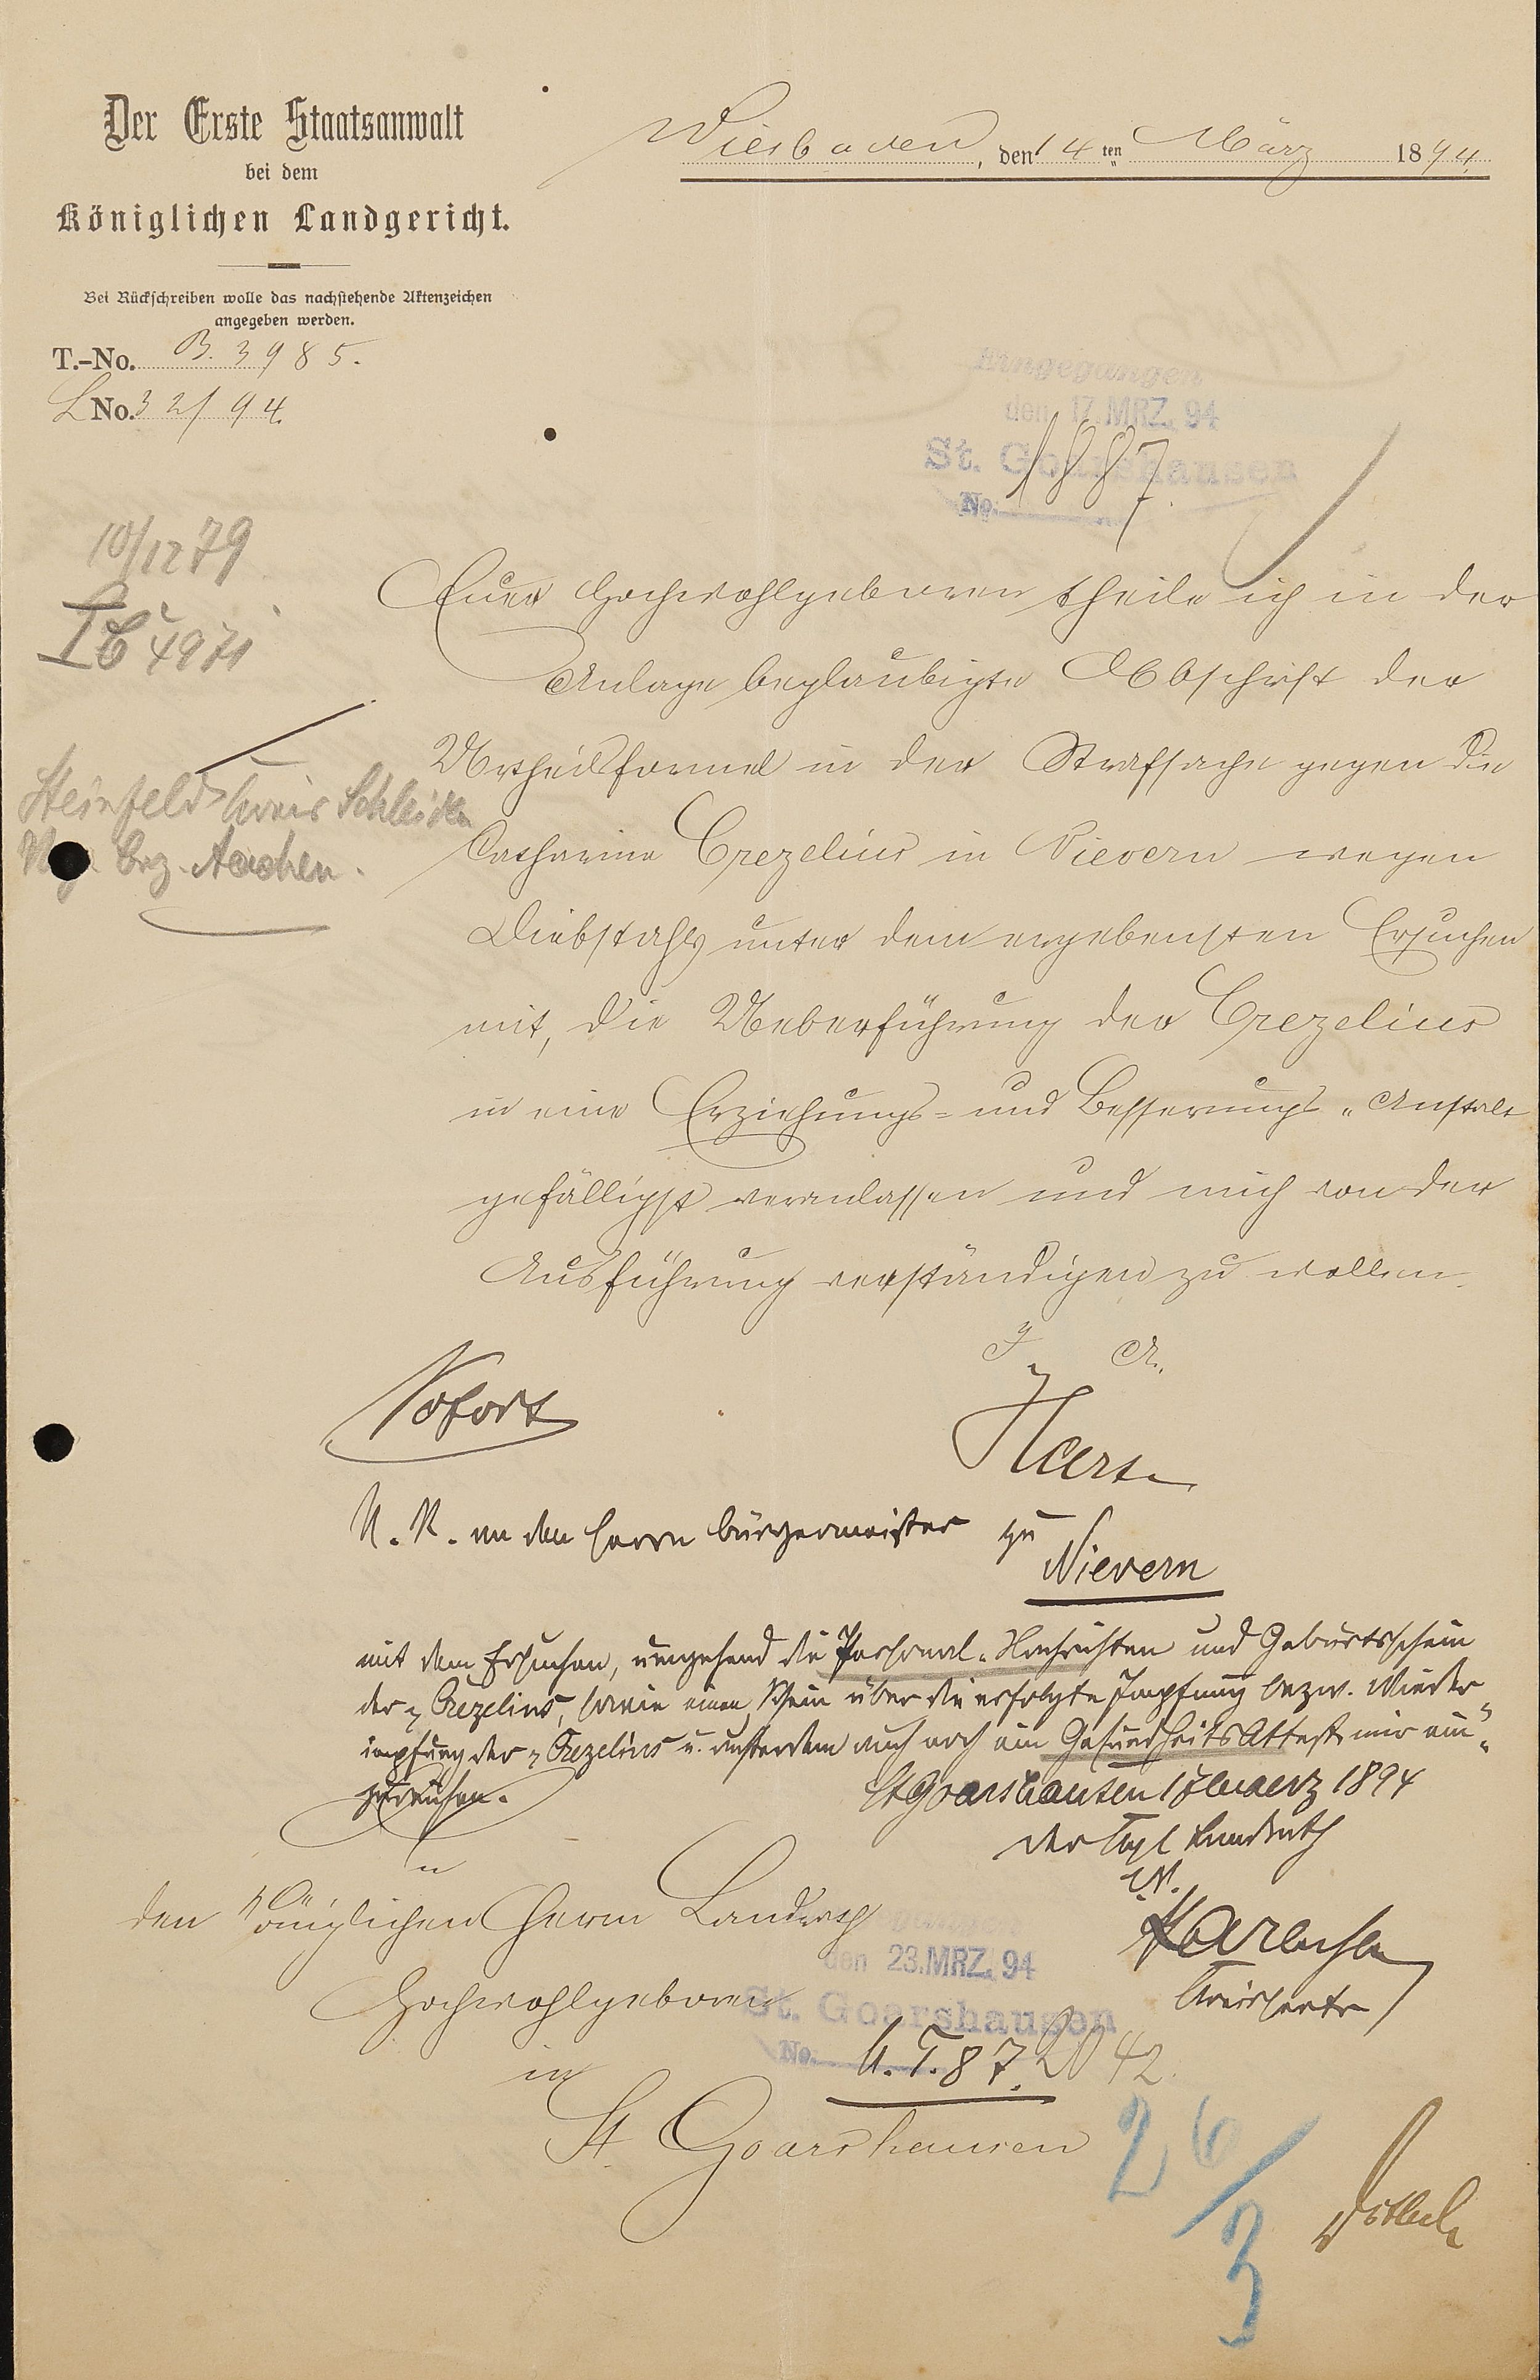 Der Erste Staatsanwalt
bei dem
Königlichen Landgericht.
Bei Rückschreiben wolle das nachstehende Aktenzeichen
angegeben werden.
T.-No. B. 3985.
L No. 32/94.
Wiesbaden, den 14ten März 1894.
Eingegangen
den 17. MRZ. 94
St. Goarshausen
No. 1887.
10/12 79
Steinfeld Kreis Schleiden
Bez. Aachen.
Euer Hochwohlgeboren theile ich in der
Anlage beglaubigte Abschrift der
Urtheilsformel in der Strafsache gegen die
Catharina Crezelius in Nievern wegen
Diebstahls unter dem ergebensten Ersuchen
mit, die Ueberführung der Crezelius
in eine Erziehungs- und Besserungs-Anstalt
gefälligst veranlassen und mich von der
Ausführung verständigen zu wollen.
J. A.
Sofort
U. R. an den Herrn Bürgermeister zu
Nievern
mit dem Ersuchen, umgehend die Personal-Nachrichten und Geburtsschein
der p Crezelius, sowie einen Schein über die erfolgte Impfung bezw. Wieder-
impfung der p Crezelius u. außerdem auch noch ein Gesundheits Attest mir ein-
zureichen.
St Goarshausen 18 Maerz 1894
Der Kgl Landrath
i.V.
Kreissecretr
An
den Königlichen Herrn Landrath
Hochwohlgeboren
in
St. Goarshausen
den 23. MRZ. 94
St. Goarshausen
No. 2042.
U. T. 87.
26/3